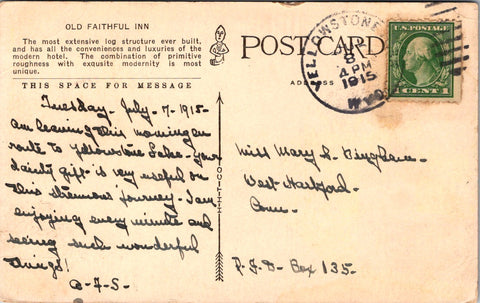 OLD FAITHFUL INN
The most extensive log structure ever built,
and has all the conveniences and luxuries of the
modern hotel. The combination of primitive
roughness with exquisite modernity is most
unique.
THIS SPACE FOR MESSAGE
Tuesday- July- 7- 1915-
Am leaving this morning en
route to Yellowstone Lake- Your
dainty gift is very useful on
this strenuous journey- I am
enjoying every minute and
seeing such wonderful
things!
A-F-S-
H-H-T-CO-
POST CARD
ADDRESS
YELLOWSTONE
8
4 PM
1915
U.S. POSTAGE
1 CENT 1
Miss Mary L. Bingham-
West Hartford-
Conn-
R.F.D- Box 135-